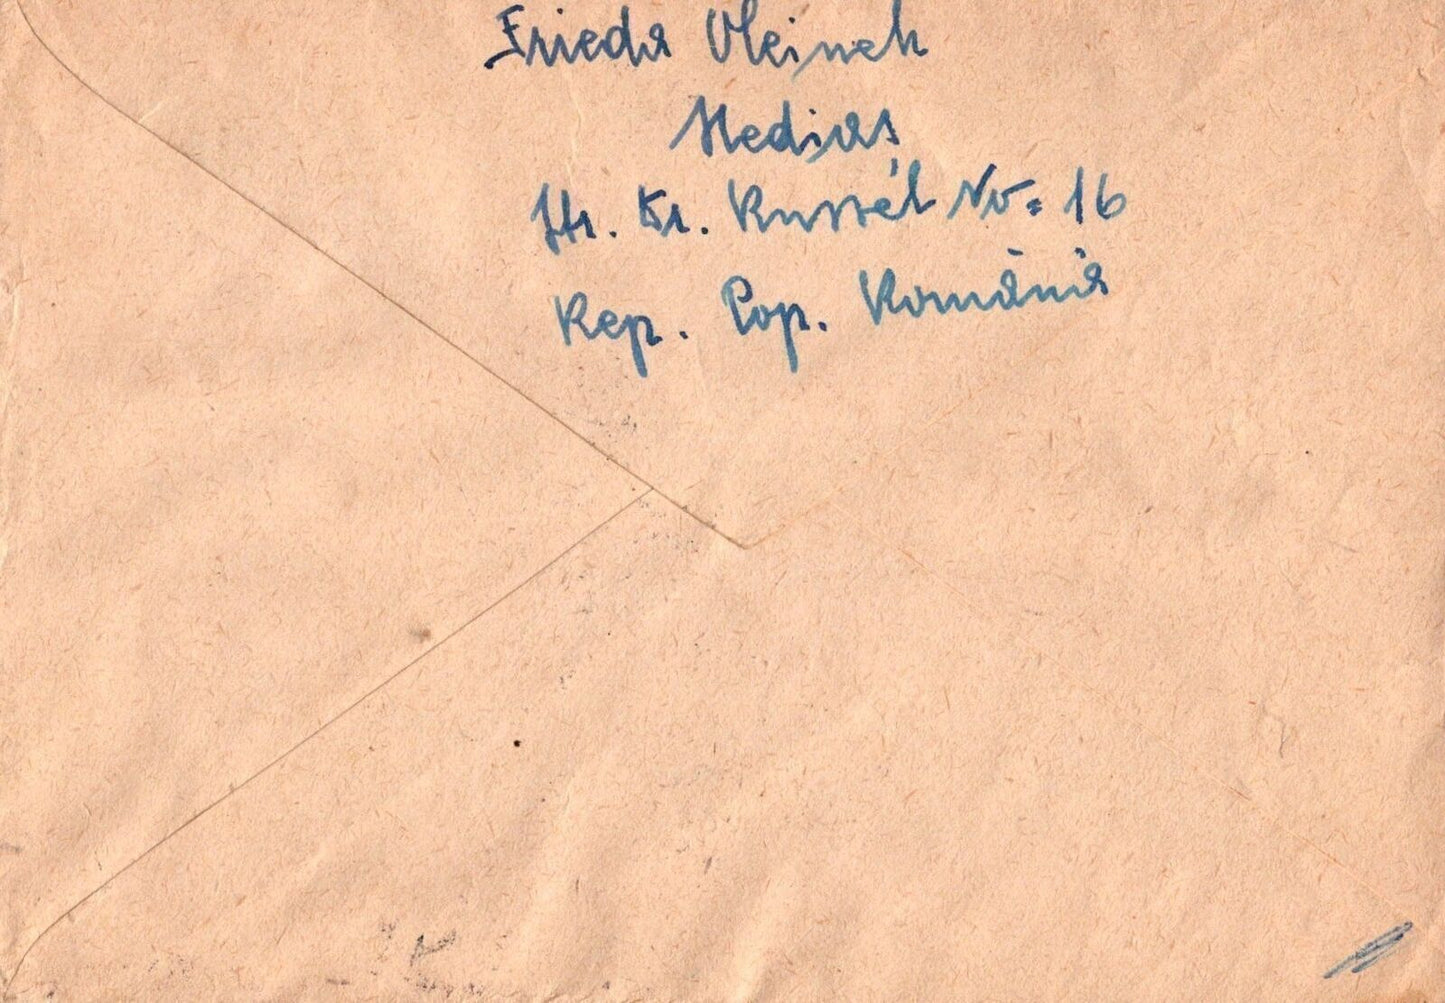 Frieda Oleinek
Medias
Str. Kr. Russél No. 16
Rep. Pop. Română